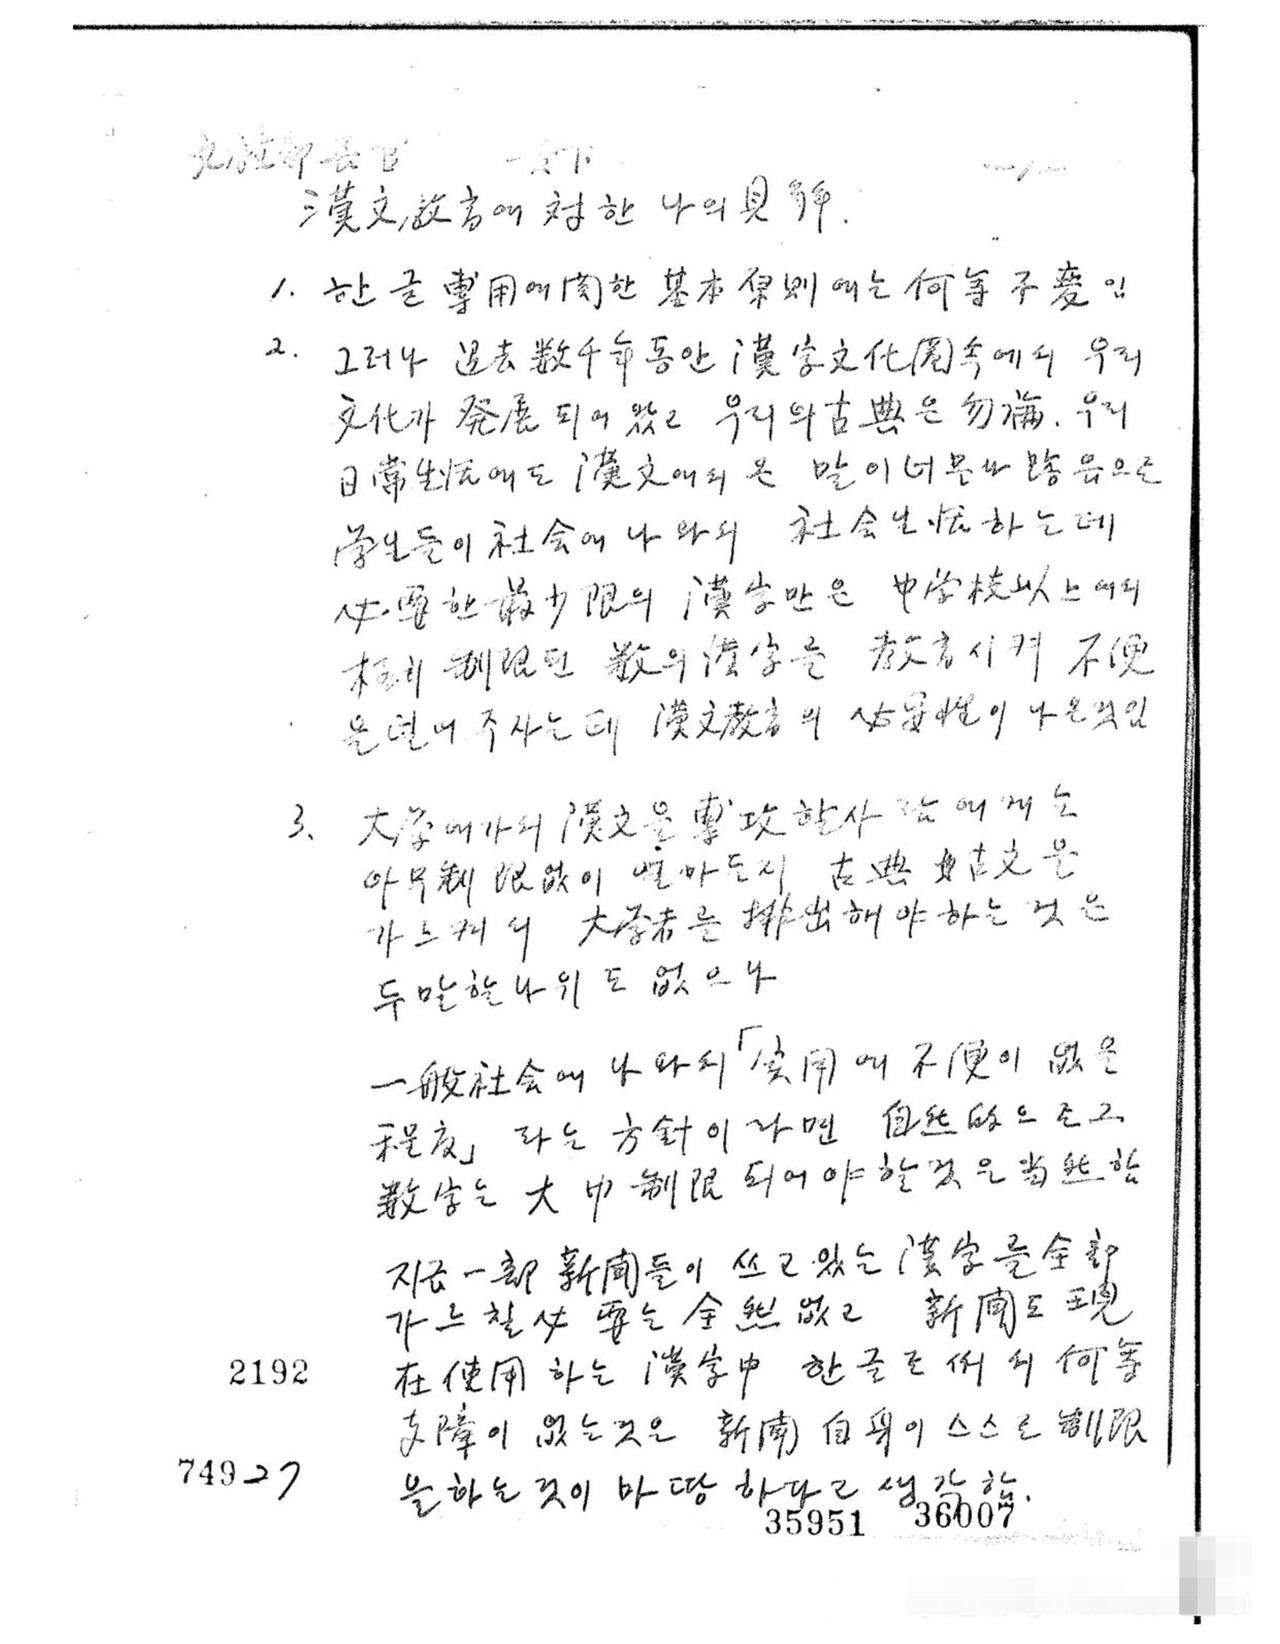 文敎部長官 貴下
漢文敎育에 対한 나의 見解.
1. 한글 専用에 関한 基本原則에는 何等 不変임
2. 그러나 過去 数千年동안 漢字文化圏속에서 우리
文化가 発展되어 왔고 우리의 古典은 勿論. 우리
日常生活에도 漢文에서 온 말이 너무나 많음으로
学生들이 社会에 나와서 社会生活하는데
必要한 最少限의 漢字만은 中学校以上에서
制限된 数의 漢字를 敎育시켜 不便
을 덜어주자는데 漢文敎育의 必要性이 나온것임
3. 大学에가서 漢文을 専攻할사람에게는
아무制限없이 얼마든지 古典 古文을
가르켜서 大学者를 排出해야하는 것은
두말할나위도 없으나
一般社会에 나와서 「実用에 不便이 없을
程度」 라는 方針이라면 自然的으로 그
数字는 大巾 制限되어야 할것은 当然함
지금 一部 新聞들이 쓰고있는 漢字를 全部
가르칠 必要는 全然없고 新聞도 現
在 使用하는 漢字中 한글로 써서 何等
支障이 없는것은 新聞 自身이 스스로 制限
을하는 것이 마땅하다고 생각함.
2192
74927
35951 36007